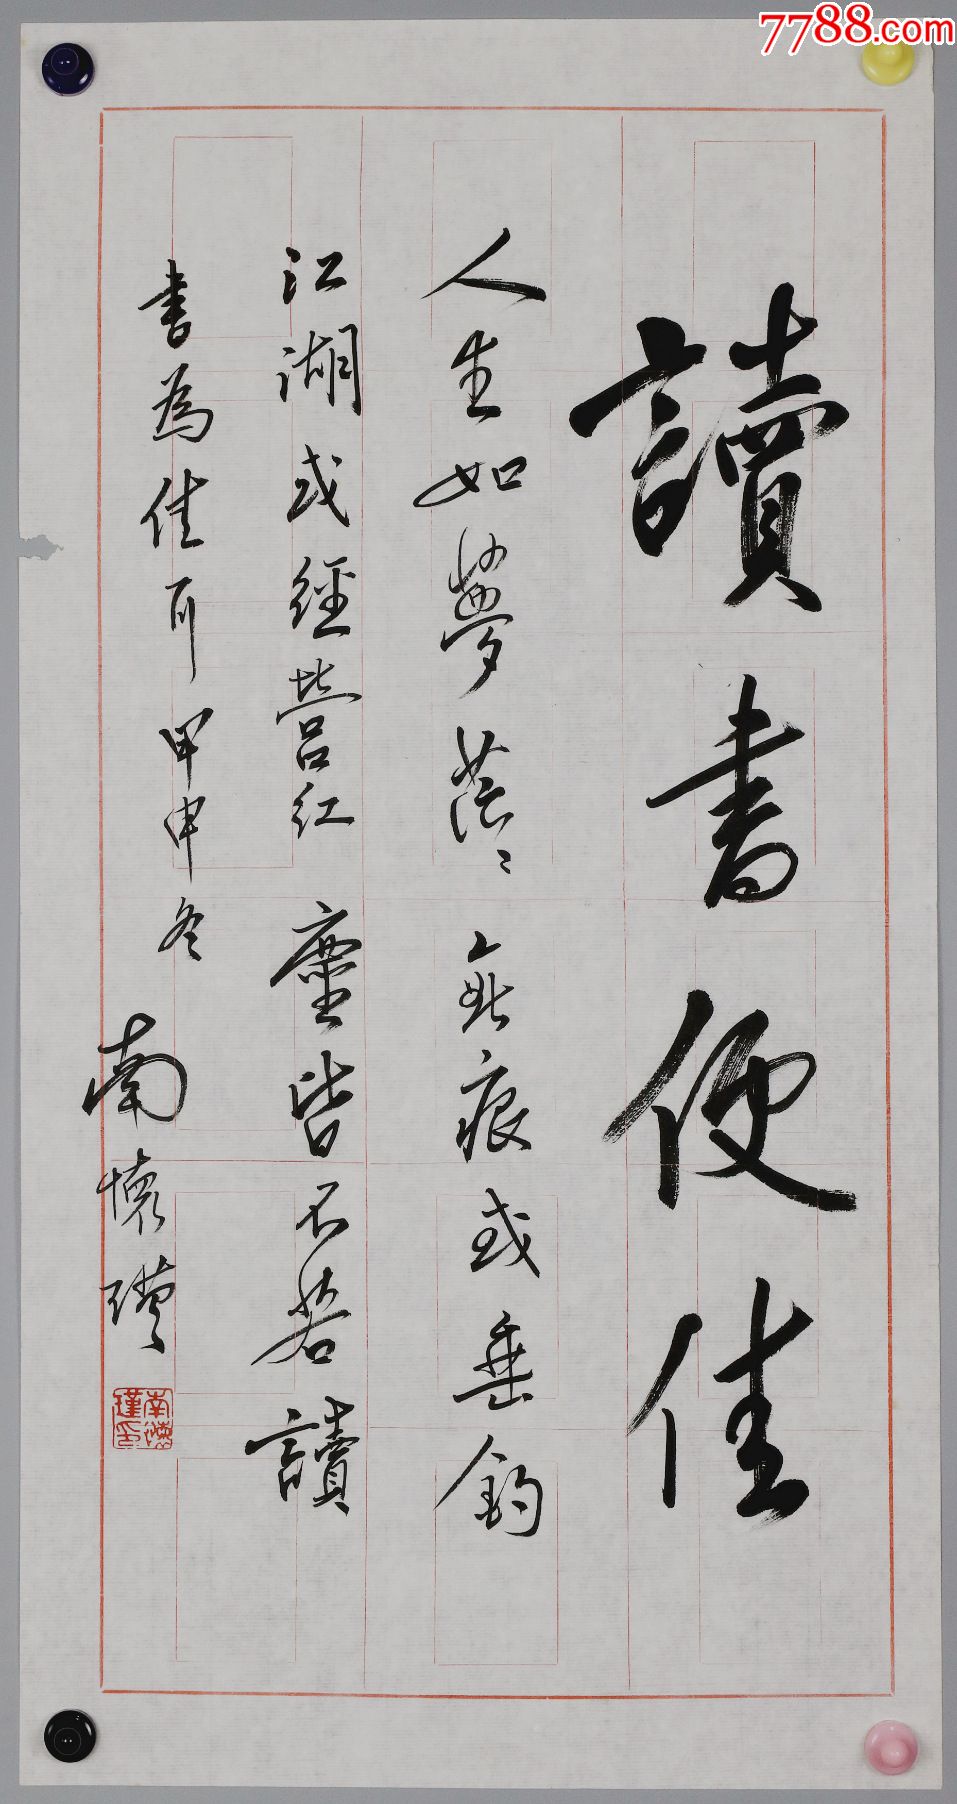 7788.com
讀書便佳
人生如夢茫〻無痕或垂釣
江湖或經營紅塵皆不若讀
書為佳耳甲申冬
南懷瑾
南懷瑾印